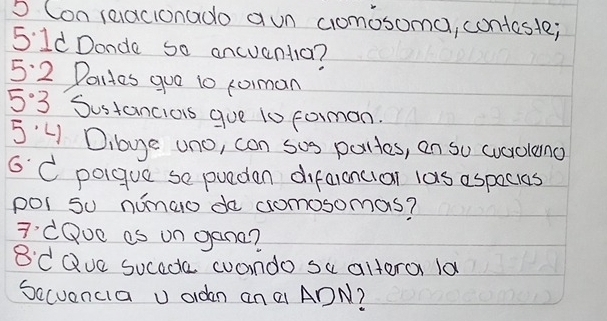 5 Con relacionado a un cromosoma, conteste;
5.1 ¿Donde se encuentra?
5.2 Partes que lo forman
5.3 Sustancias que lo forman.
5.4 Dibuje uno, con sus partes, en su cuaderno
6. ¿ porque se pueden diferenciar las especies
por su número de cromosomas?
7. ¿Que es un gene?
8. ¿ Que sucede cuando se altera la
Secuencia u orden en el ADN?